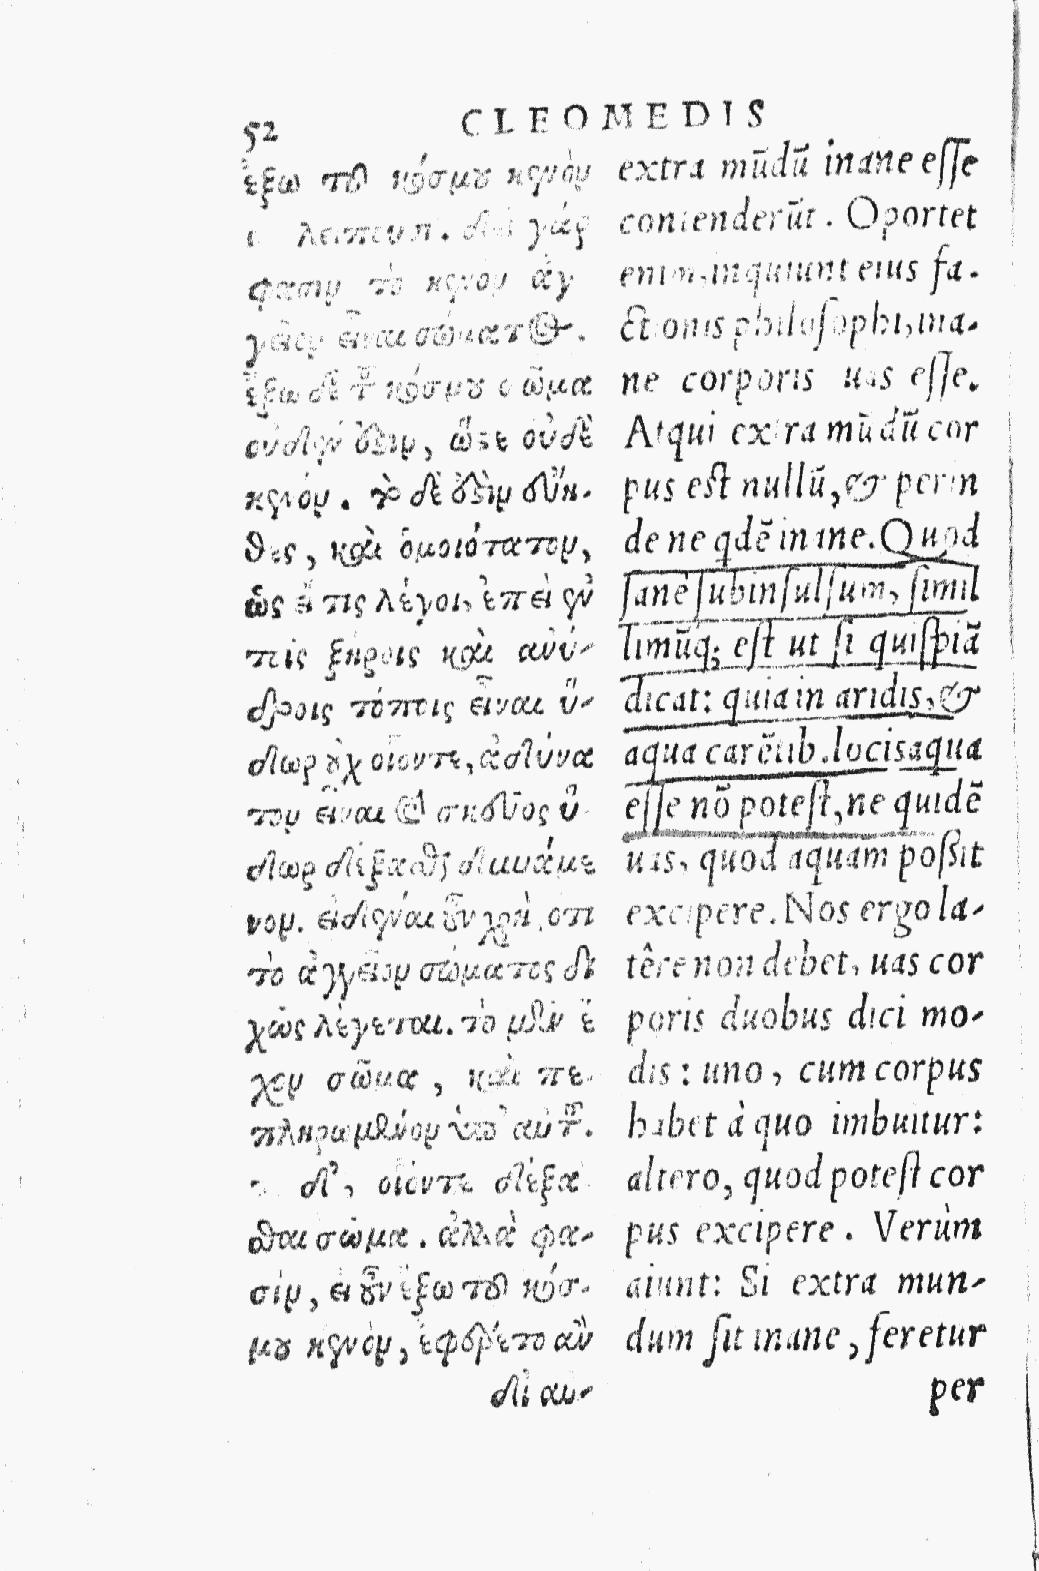 52 CLEOMEDIS
ἔξω τοῦ κόσμου κενὸν
λείπειν π. δεῖ γάρ
φασιν τὸ κενὸν ἀγ
γεῖον εἶναι σώματος.
ἔξω δὲ τοῦ κόσμου σῶμα
οὐδὲν ὅζιν, ὥςε οὐδὲ
κενόν. τὸ δὲ ὅζὶν
θες, καὶ ὁμοιότατον,
ὡς εἴ τις λέγοι, ἐπεὶ ἐν
τοῖς ξηροῖς καὶ ἀνύ-
δροις τόποις εἶναι ὕ-
δωρ οὐχ οἷόντε, ἀδύνα
τον εἶναι καὶ σκεῦος ὕ-
δωρ δέξασθαι δυνάμε
νον. εἰδέναι οὖν χρὴ, ὅτι
τὸ ἀγγεῖον σώματος δι
χῶς λέγεται. τὸ μὲν ἔ
χεν σῶμα, καὶ πε-
πληρωμένον ὑπὸ αὐτοῦ.
δ', οἷόντε δέξα
σθαι σῶμα. ἀλλὰ φα-
σὶν, εἰ οὖν ἔξω τοῦ κόσ-
μου κενὸν, ἐφέρετο ἂν
δι αὐ-
extra mūdū inane eſſe
contenderūt. Oportet
enim, inquiunt eius fa-
ctionis philoſophi, ina-
ne corporis uas eſſe.
Atqui extra mūdū cor
pus eſt nullū, & perin
de ne qdē inane. Quod
ſane ſubinſulſum, ſimil
limūq; eſt ut ſi quiſpiā
dicat: quia in aridis, &
aqua carētib. locis aqua
eſſe nō poteſt, ne quidē
uas, quod aquam poſsit
excipere. Nos ergo la-
têre non debet, uas cor
poris duobus dici mo-
dis: uno, cum corpus
habet à quo imbuitur:
altero, quod poteſt cor
pus excipere. Verùm
aiunt: Si extra mun-
dum ſit inane, feretur
per